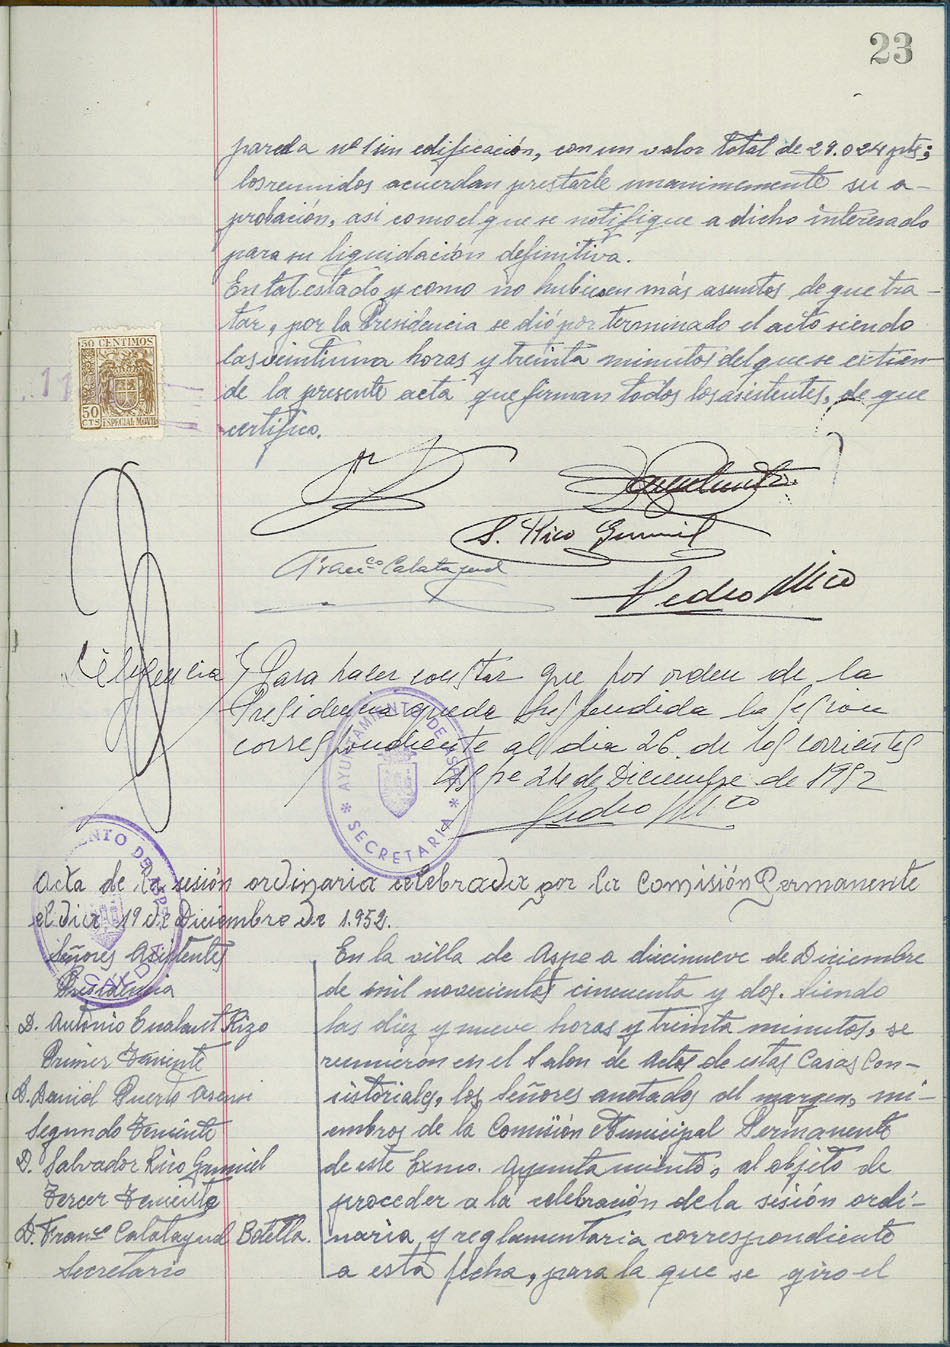 23
parcela nº 1 sin edificación, con un valor total de 29.024 pts;
los reunidos acuerdan prestarle unanimemente su a-
probación, asi como el que se notifique a dicho interesado
para su liquidación definitiva.
En tal estado y como no hubiesen más asuntos de que tra-
tar, por la Presidencia se dió por terminado el acto siendo
las veintiuna horas y treinta minutos del que se extien-
de la presente acta que firman todos los asistentes, de que
certifico.
50 CENTIMOS
50
CTS
ESPECIAL MOVIL
11
S. Rico
Franco Calatayud
Pedro Mico
Diligencia } Para hacer constar que por orden de la
Presidencia queda suspendida la sesion
correspondiente al dia 26 de los corrientes
Aspe 24 de Diciembre de 1952
Pedro Mico
AYUNTAMIENTO DE ASPE
* SECRETARIA *
Acta de la sesión ordinaria celebrada por la Comisión Permanente
el dia 19 de Diciembre de 1.952.
Señores Asistentes
Presidencia
D. Antonio Rizo
Primer Teniente
D. Daniel Puerto Asensi
Segundo Teniente
D. Salvador Rico
Tercer Teniente
D. Franco Calatayud Botella.
Secretario
En la villa de Aspe a diecinueve de Diciembre
de mil novecientos cincuenta y dos. Siendo
las diez y nueve horas y treinta minutos, se
reunieron en el Salon de Actos de estas Casas Con-
sistoriales, los Señores anotados al margen, mi-
embros de la Comisión Municipal Permanente
de este Exmo. Ayuntamiento, al objeto de
proceder a la celebración de la sesión ordi-
naria y reglamentaria correspondiente
a esta fecha, para la que se giro el